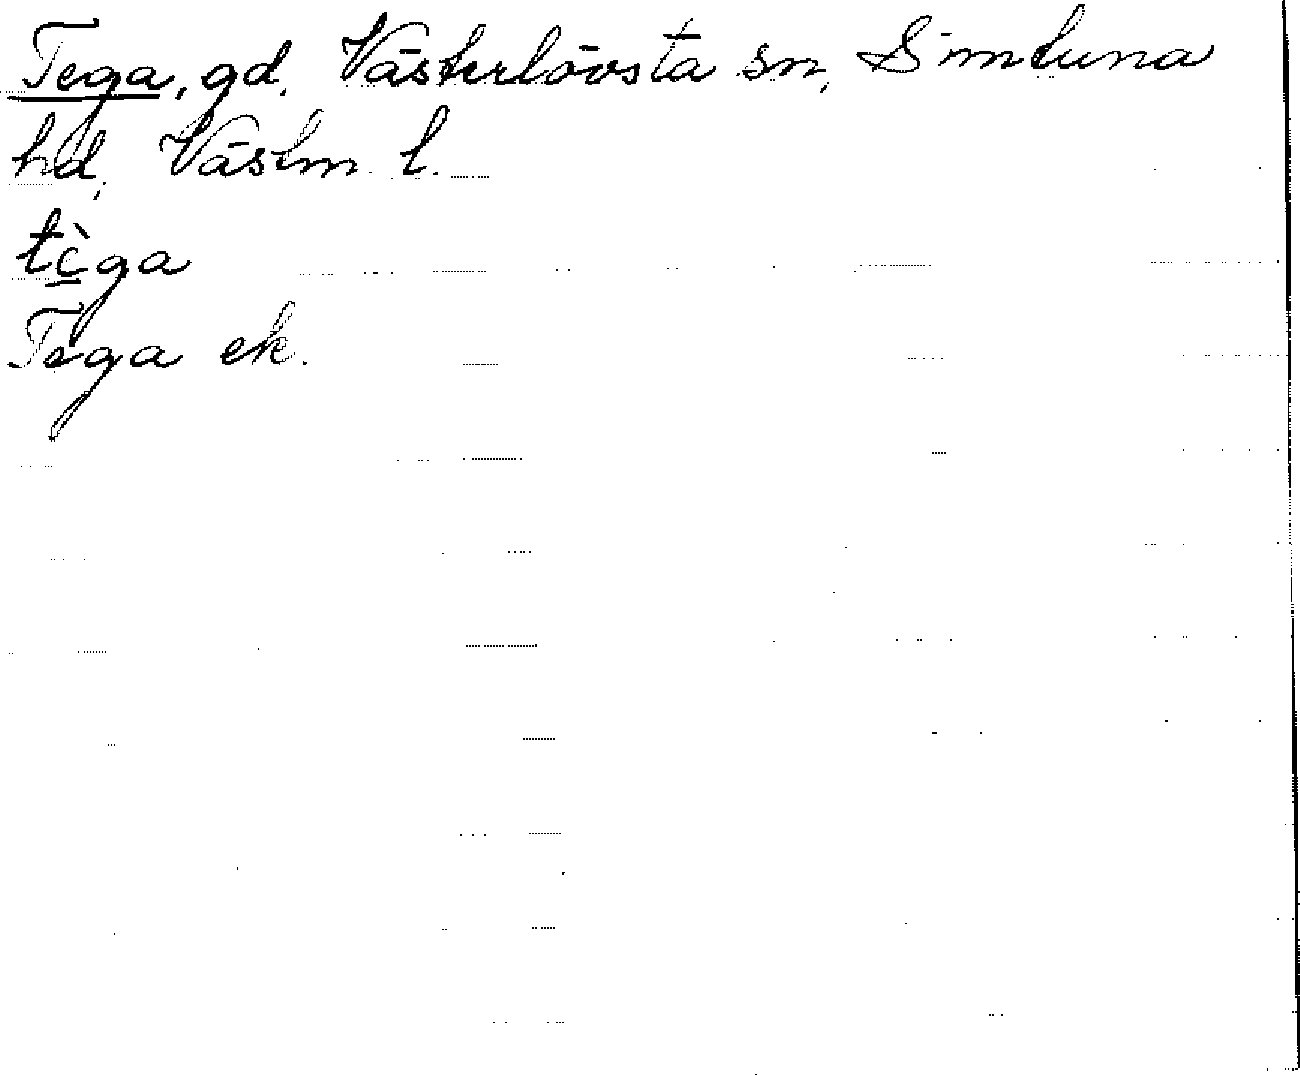 Tega, gd, Västerlövsta sn, Simtuna
hd, Västm. l.
tìga
Tega ek.